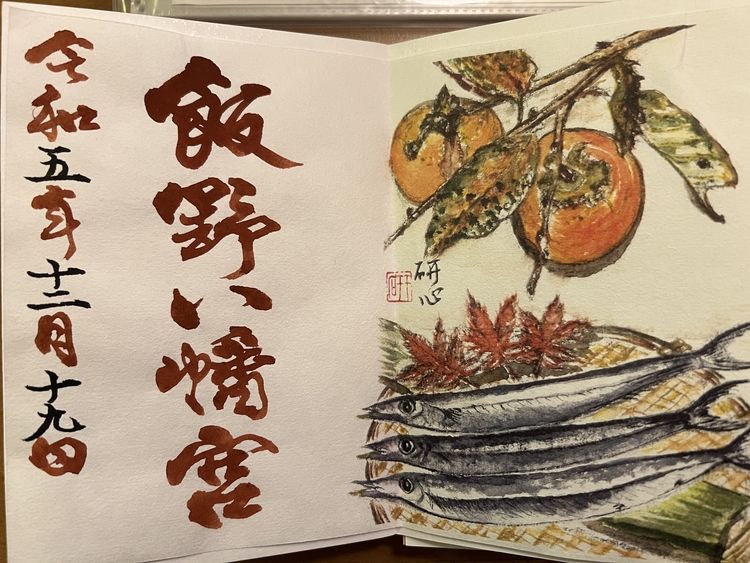 研心
飯野八幡宮
令和五年十二月十九日